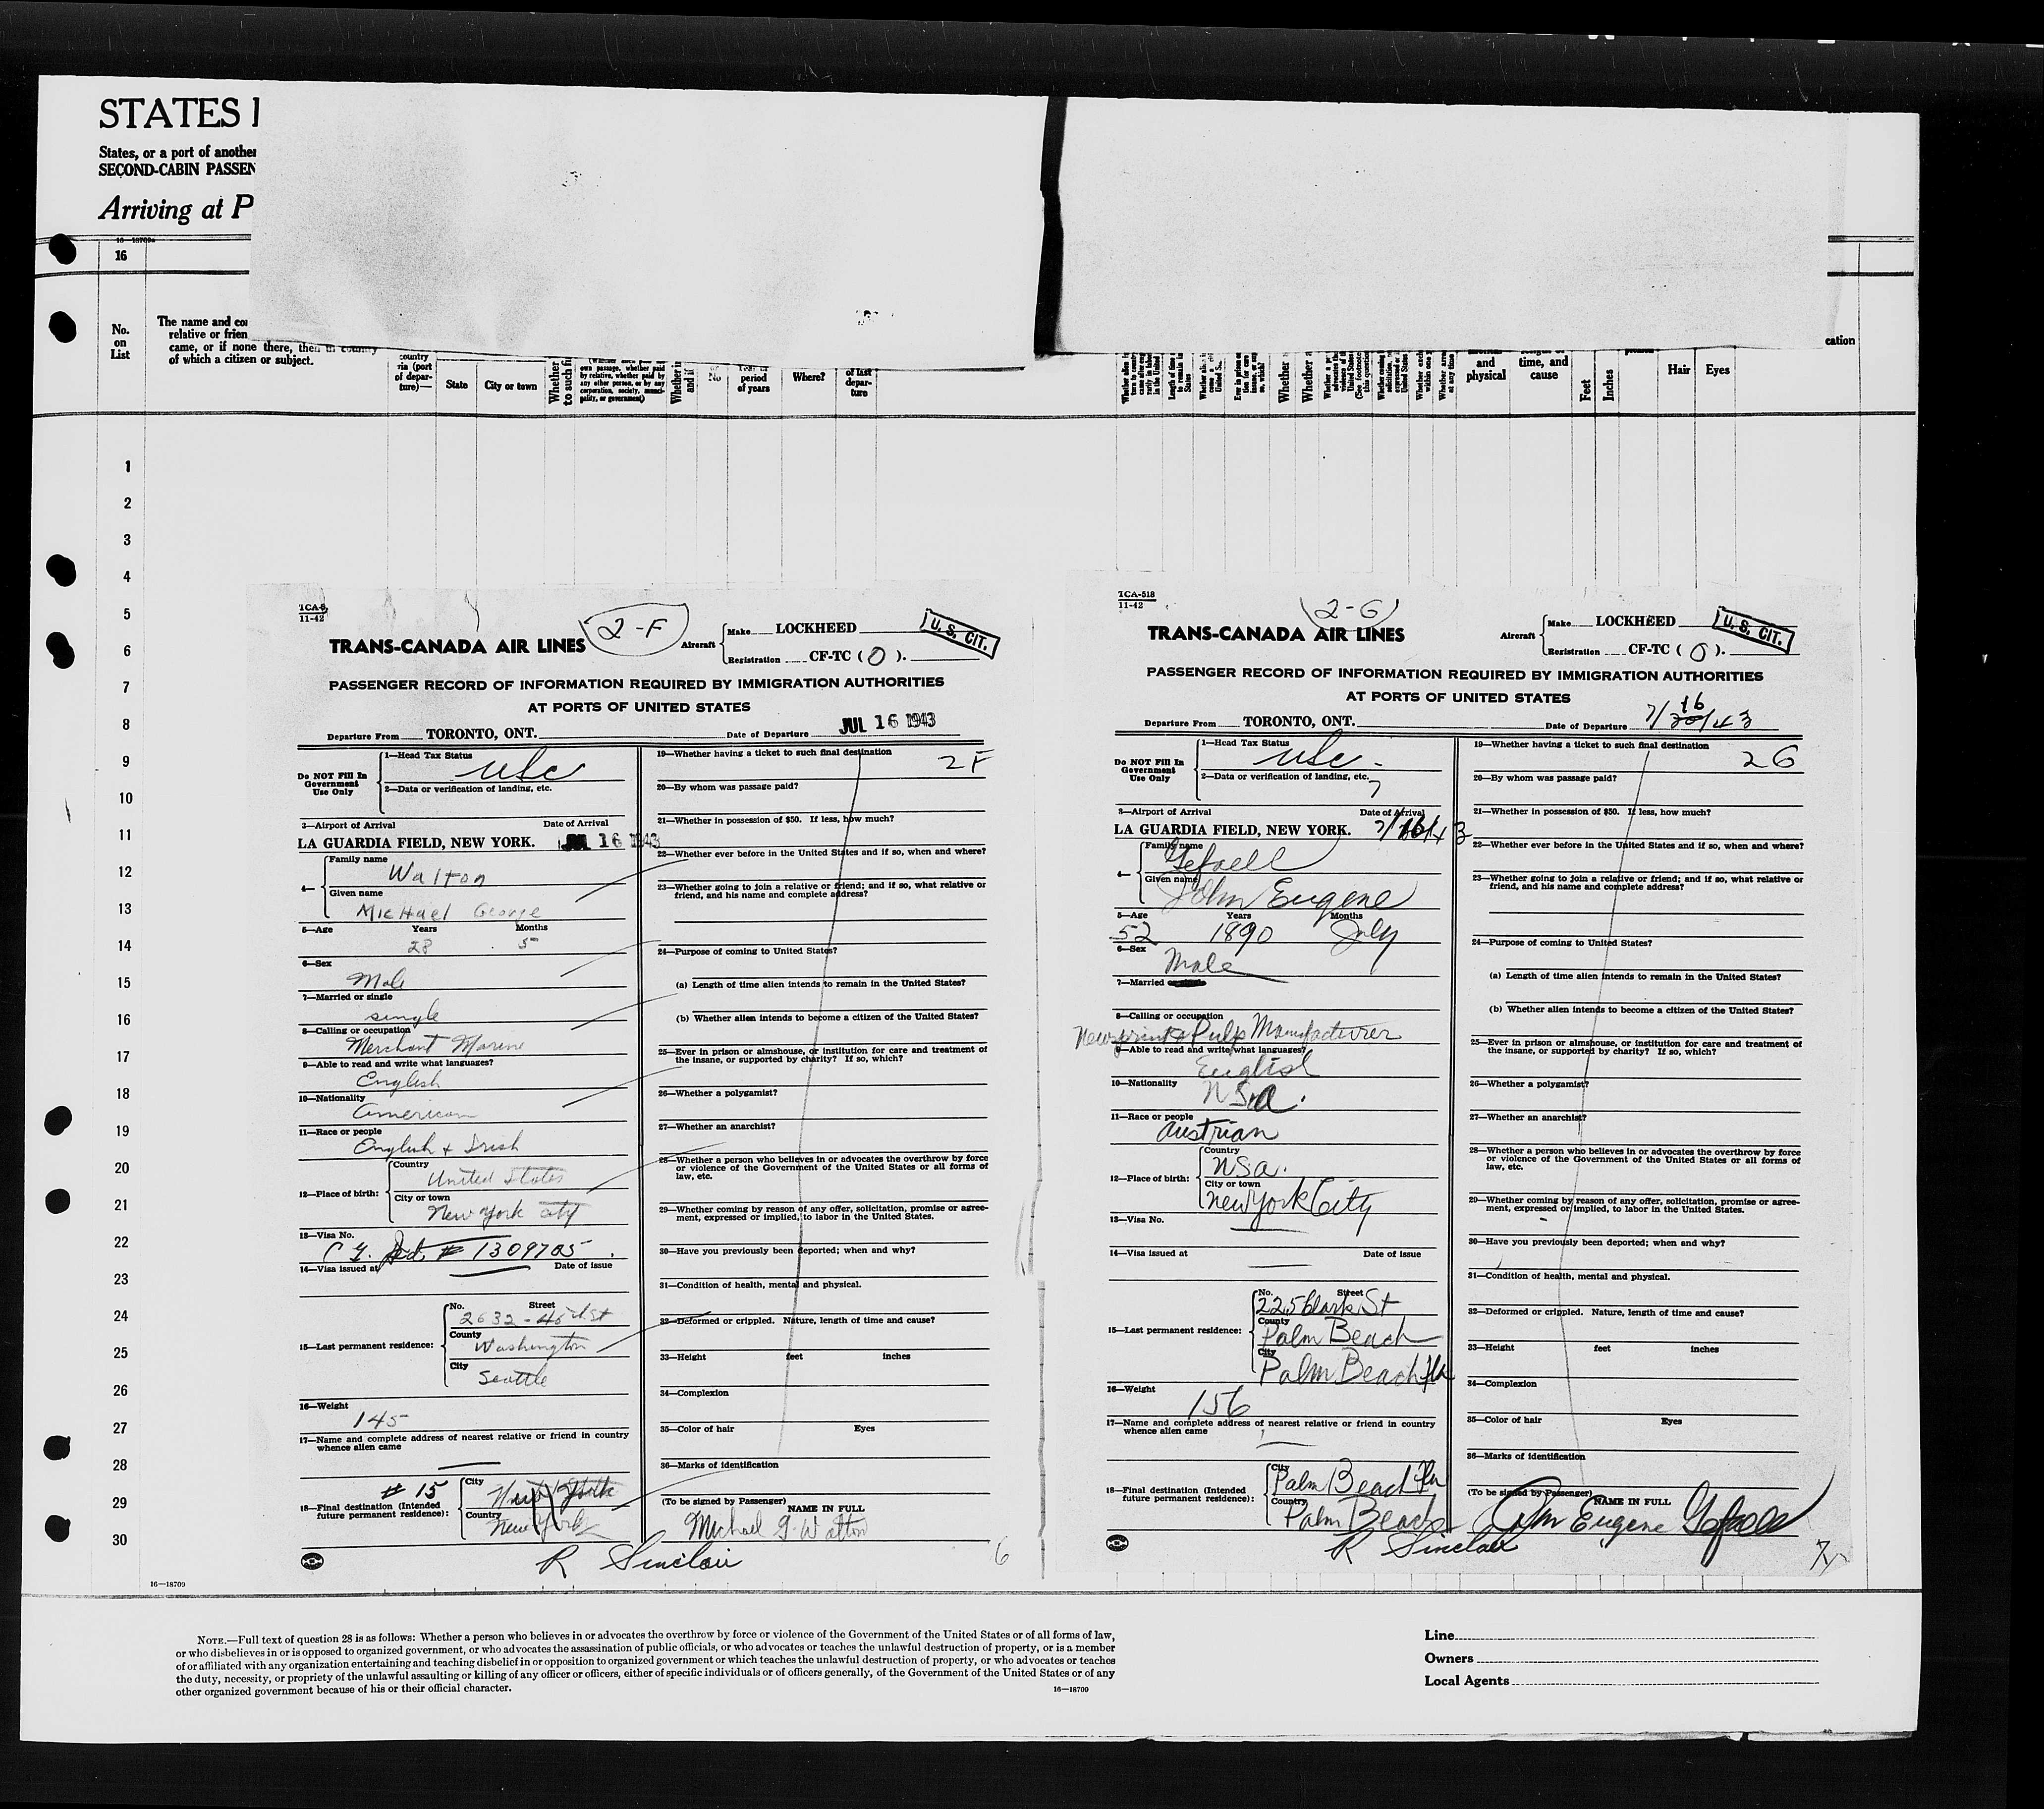 STATES
States, or a port of another
SECOND-CABIN PASSEN
Arriving at P
16—18709a
16
No.
on
List
The name and
relative or frien
came, or if none there, then in country
of which a citizen or subject.
country
(port
of depar-
ture)—
State
City or town
Whether
to such
own passage, whether paid
by relative, whether paid by
any other person, or by any
corporation, society, munici-
pality, or government)
Whether
and if
No
period
of years
Where?
of last
depar-
ture
Whether
Whether
and
physical
time, and
cause
Feet
Inches
Hair
Eyes
cation
1
2
3
4
5
6
7
8
9
10
11
12
13
14
15
16
17
18
19
20
21
22
23
24
25
26
27
28
29
30
11-42
TRANS-CANADA AIR LINES
2-F
Aircraft
Make LOCKHEED
Registration CF-TC (O).
U. S. CIT.
PASSENGER RECORD OF INFORMATION REQUIRED BY IMMIGRATION AUTHORITIES
AT PORTS OF UNITED STATES
Departure From TORONTO, ONT. Date of Departure JUL 16 1943
Do NOT Fill In
Government
Use Only
1—Head Tax Status
USC
2—Data or verification of landing, etc.
3—Airport of Arrival Date of Arrival
LA GUARDIA FIELD, NEW YORK. JUL 16 1943
4—
Family name
Walton
Given name
Michael George
5—Age Years Months
28 5
6—Sex
Male
7—Married or single
single
8—Calling or occupation
Merchant Marine
9—Able to read and write what languages?
English
10—Nationality
American
11—Race or people
English + Irish
12—Place of birth:
Country
United States
City or town
New York City
13—Visa No.
C G. # 1309705
14—Visa issued at Date of issue
15—Last permanent residence:
No. Street
2632 - 45 St
County
Washington
City
Seattle
16—Weight
145
17—Name and complete address of nearest relative or friend in country
whence alien came
# 15
18—Final destination (Intended
future permanent residence):
City
New York
Country
New York
19—Whether having a ticket to such final destination
2F
20—By whom was passage paid?
21—Whether in possession of $50. If less, how much?
22—Whether ever before in the United States and if so, when and where?
23—Whether going to join a relative or friend; and if so, what relative or
friend, and his name and complete address?
24—Purpose of coming to United States?
(a) Length of time alien intends to remain in the United States?
(b) Whether alien intends to become a citizen of the United States?
25—Ever in prison or almshouse, or institution for care and treatment of
the insane, or supported by charity? If so, which?
26—Whether a polygamist?
27—Whether an anarchist?
28—Whether a person who believes in or advocates the overthrow by force
or violence of the Government of the United States or all forms of
law, etc.
29—Whether coming by reason of any offer, solicitation, promise or agree-
ment, expressed or implied, to labor in the United States.
30—Have you previously been deported; when and why?
31—Condition of health, mental and physical.
32—Deformed or crippled. Nature, length of time and cause?
33—Height feet inches
34—Complexion
35—Color of hair Eyes
36—Marks of identification
(To be signed by Passenger) NAME IN FULL
Michael G. Walton
R Sinclair
6
TCA-518
11-42
2-G
TRANS-CANADA AIR LINES
Aircraft
Make LOCKHEED
Registration CF-TC (O).
U. S. CIT.
PASSENGER RECORD OF INFORMATION REQUIRED BY IMMIGRATION AUTHORITIES
AT PORTS OF UNITED STATES
Departure From TORONTO, ONT. Date of Departure 7/16/43
Do NOT Fill In
Government
Use Only
1—Head Tax Status
USC
2—Data or verification of landing, etc.
7
3—Airport of Arrival Date of Arrival
LA GUARDIA FIELD, NEW YORK. 7/16/43
4—
Family name
Gefaell
Given name
John Eugene
5—Age Years Months
52 1890 July
6—Sex
Male
7—Married
8—Calling or occupation
Newsprint & Pulp Manufacturer
9—Able to read and write what languages?
English
10—Nationality
USA.
11—Race or people
Austrian
12—Place of birth:
Country
USA.
City or town
New York City
13—Visa No.
14—Visa issued at Date of issue
15—Last permanent residence:
No. Street
225 Clark St
County
Palm Beach
City
Palm Beach Fla
16—Weight
156
17—Name and complete address of nearest relative or friend in country
whence alien came
18—Final destination (Intended
future permanent residence):
City
Palm Beach Fla
Country
Palm Beach
19—Whether having a ticket to such final destination
2G
20—By whom was passage paid?
21—Whether in possession of $50. If less, how much?
22—Whether ever before in the United States and if so, when and where?
23—Whether going to join a relative or friend; and if so, what relative or
friend, and his name and complete address?
24—Purpose of coming to United States?
(a) Length of time alien intends to remain in the United States?
(b) Whether alien intends to become a citizen of the United States?
25—Ever in prison or almshouse, or institution for care and treatment of
the insane, or supported by charity? If so, which?
26—Whether a polygamist?
27—Whether an anarchist?
28—Whether a person who believes in or advocates the overthrow by force
or violence of the Government of the United States or all forms of
law, etc.
29—Whether coming by reason of any offer, solicitation, promise or agree-
ment, expressed or implied, to labor in the United States.
30—Have you previously been deported; when and why?
31—Condition of health, mental and physical.
32—Deformed or crippled. Nature, length of time and cause?
33—Height feet inches
34—Complexion
35—Color of hair Eyes
36—Marks of identification
(To be signed by Passenger) NAME IN FULL
John Eugene Gefaell
R Sinclair
7
16—18709
NOTE.—Full text of question 28 is as follows: Whether a person who believes in or advocates the overthrow by force or violence of the Government of the United States or of all forms of law,
or who disbelieves in or is opposed to organized government, or who advocates the assassination of public officials, or who advocates or teaches the unlawful destruction of property, or is a member
of or affiliated with any organization entertaining and teaching disbelief in or opposition to organized government or which teaches the unlawful destruction of property, or who advocates or teaches
the duty, necessity, or propriety of the unlawful assaulting or killing of any officer or officers, either of specific individuals or of officers generally, of the Government of the United States or of any
other organized government because of his or their official character.
16—18709
Line
Owners
Local Agents